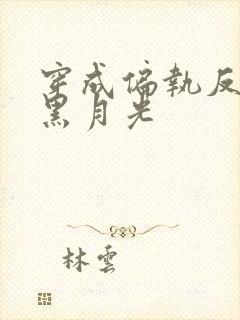 穿成偏執反
黑月光
林雲